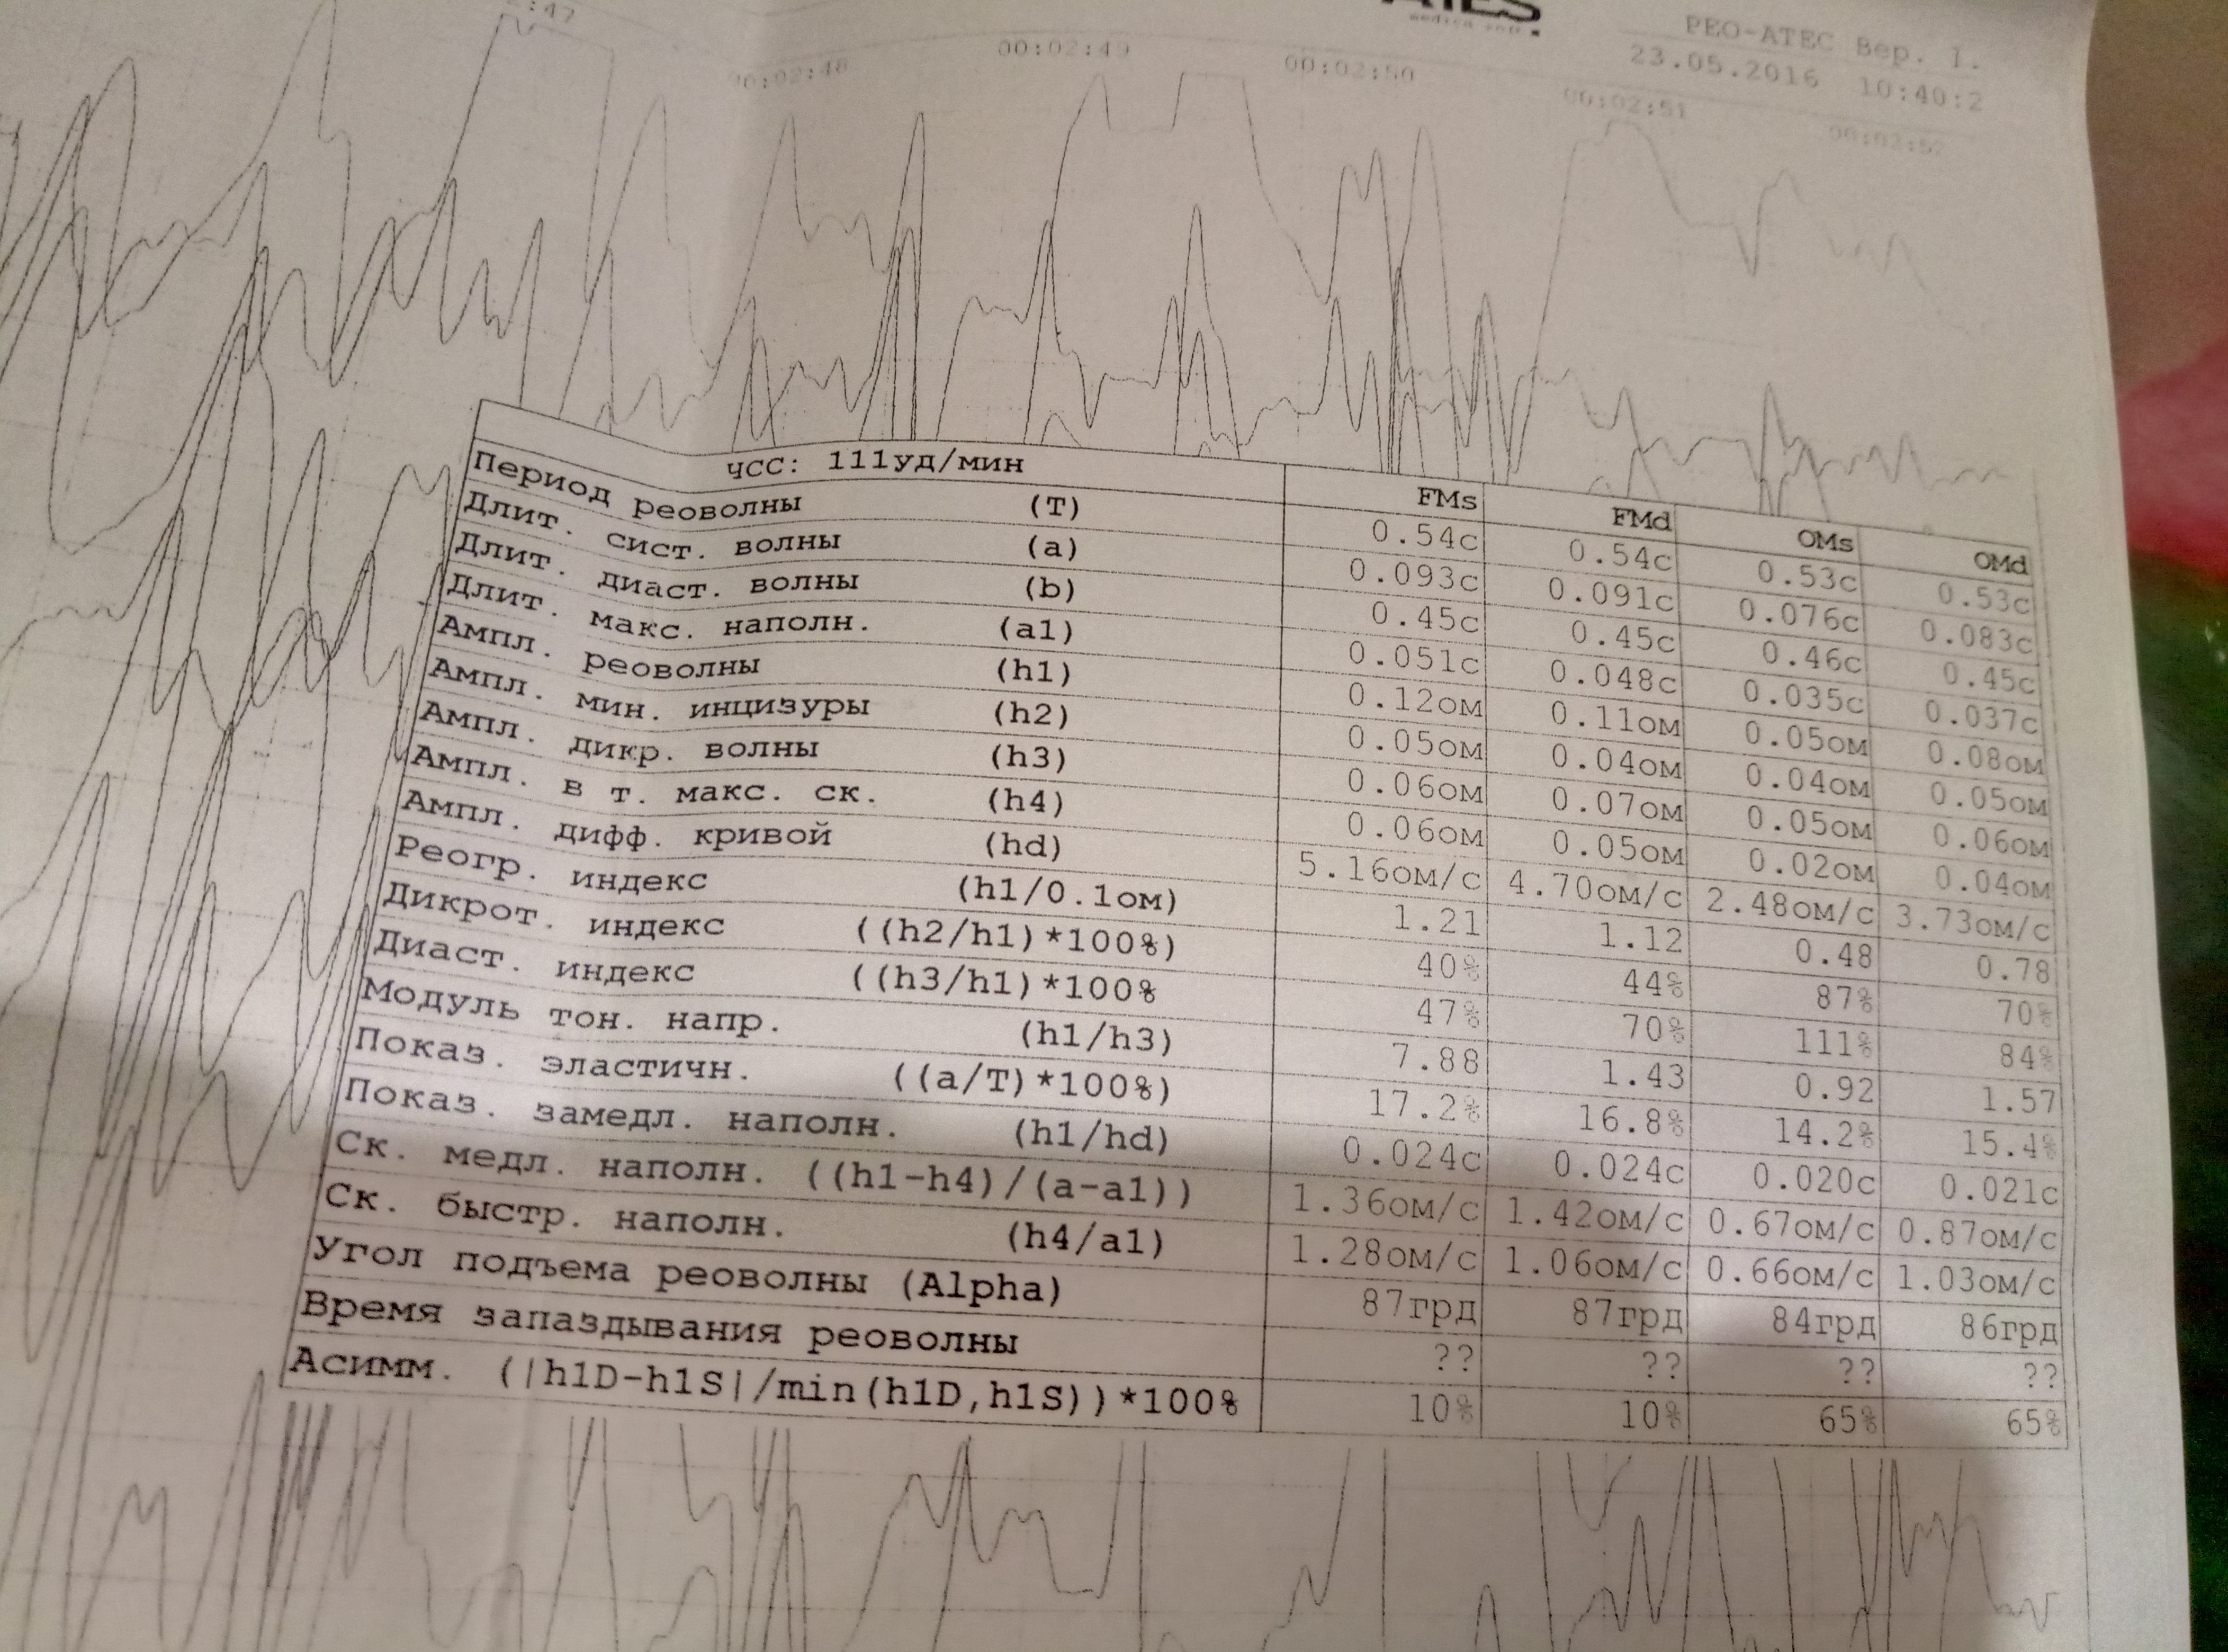 РЕО-АТЕС Вер. 1.
23.05.2016 10:40:2
:47
00:02:48
00:02:49
00:02:50
00:02:51
00:02:52
ЧСС: 111уд/мин FMs FMd OMs OMd
Период реоволны (T) 0.54с 0.54с 0.53с 0.53с
Длит. сист. волны (a) 0.093с 0.091с 0.076с 0.083с
Длит. диаст. волны (b) 0.45с 0.45с 0.46с 0.45с
Длит. макс. наполн. (a1) 0.051с 0.048с 0.035с 0.037с
Ампл. реоволны (h1) 0.12ом 0.11ом 0.05ом 0.08ом
Ампл. мин. инцизуры (h2) 0.05ом 0.04ом 0.04ом 0.05ом
Ампл. дикр. волны (h3) 0.06ом 0.07ом 0.05ом 0.06ом
Ампл. в т. макс. ск. (h4) 0.06ом 0.05ом 0.02ом 0.04ом
Ампл. дифф. кривой (hd) 5.16ом/с 4.70ом/с 2.48ом/с 3.73ом/с
Реогр. индекс (h1/0.1ом) 1.21 1.12 0.48 0.78
Дикрот. индекс ((h2/h1)*100%) 40% 44% 87% 70%
Диаст. индекс ((h3/h1)*100% 47% 70% 111% 84%
Модуль тон. напр. (h1/h3) 7.88 1.43 0.92 1.57
Показ. эластичн. ((a/T)*100%) 17.2% 16.8% 14.2% 15.4%
Показ. замедл. наполн. (h1/hd) 0.024с 0.024с 0.020с 0.021с
Ск. медл. наполн. ((h1-h4)/(a-a1)) 1.36ом/с 1.42ом/с 0.67ом/с 0.87ом/с
Ск. быстр. наполн. (h4/a1) 1.28ом/с 1.06ом/с 0.66ом/с 1.03ом/с
Угол подъема реоволны (Alpha) 87грд 87грд 84грд 86грд
Время запаздывания реоволны ?? ?? ?? ??
Асимм. (|h1D-h1S|/min(h1D,h1S))*100% 10% 10% 65% 65%